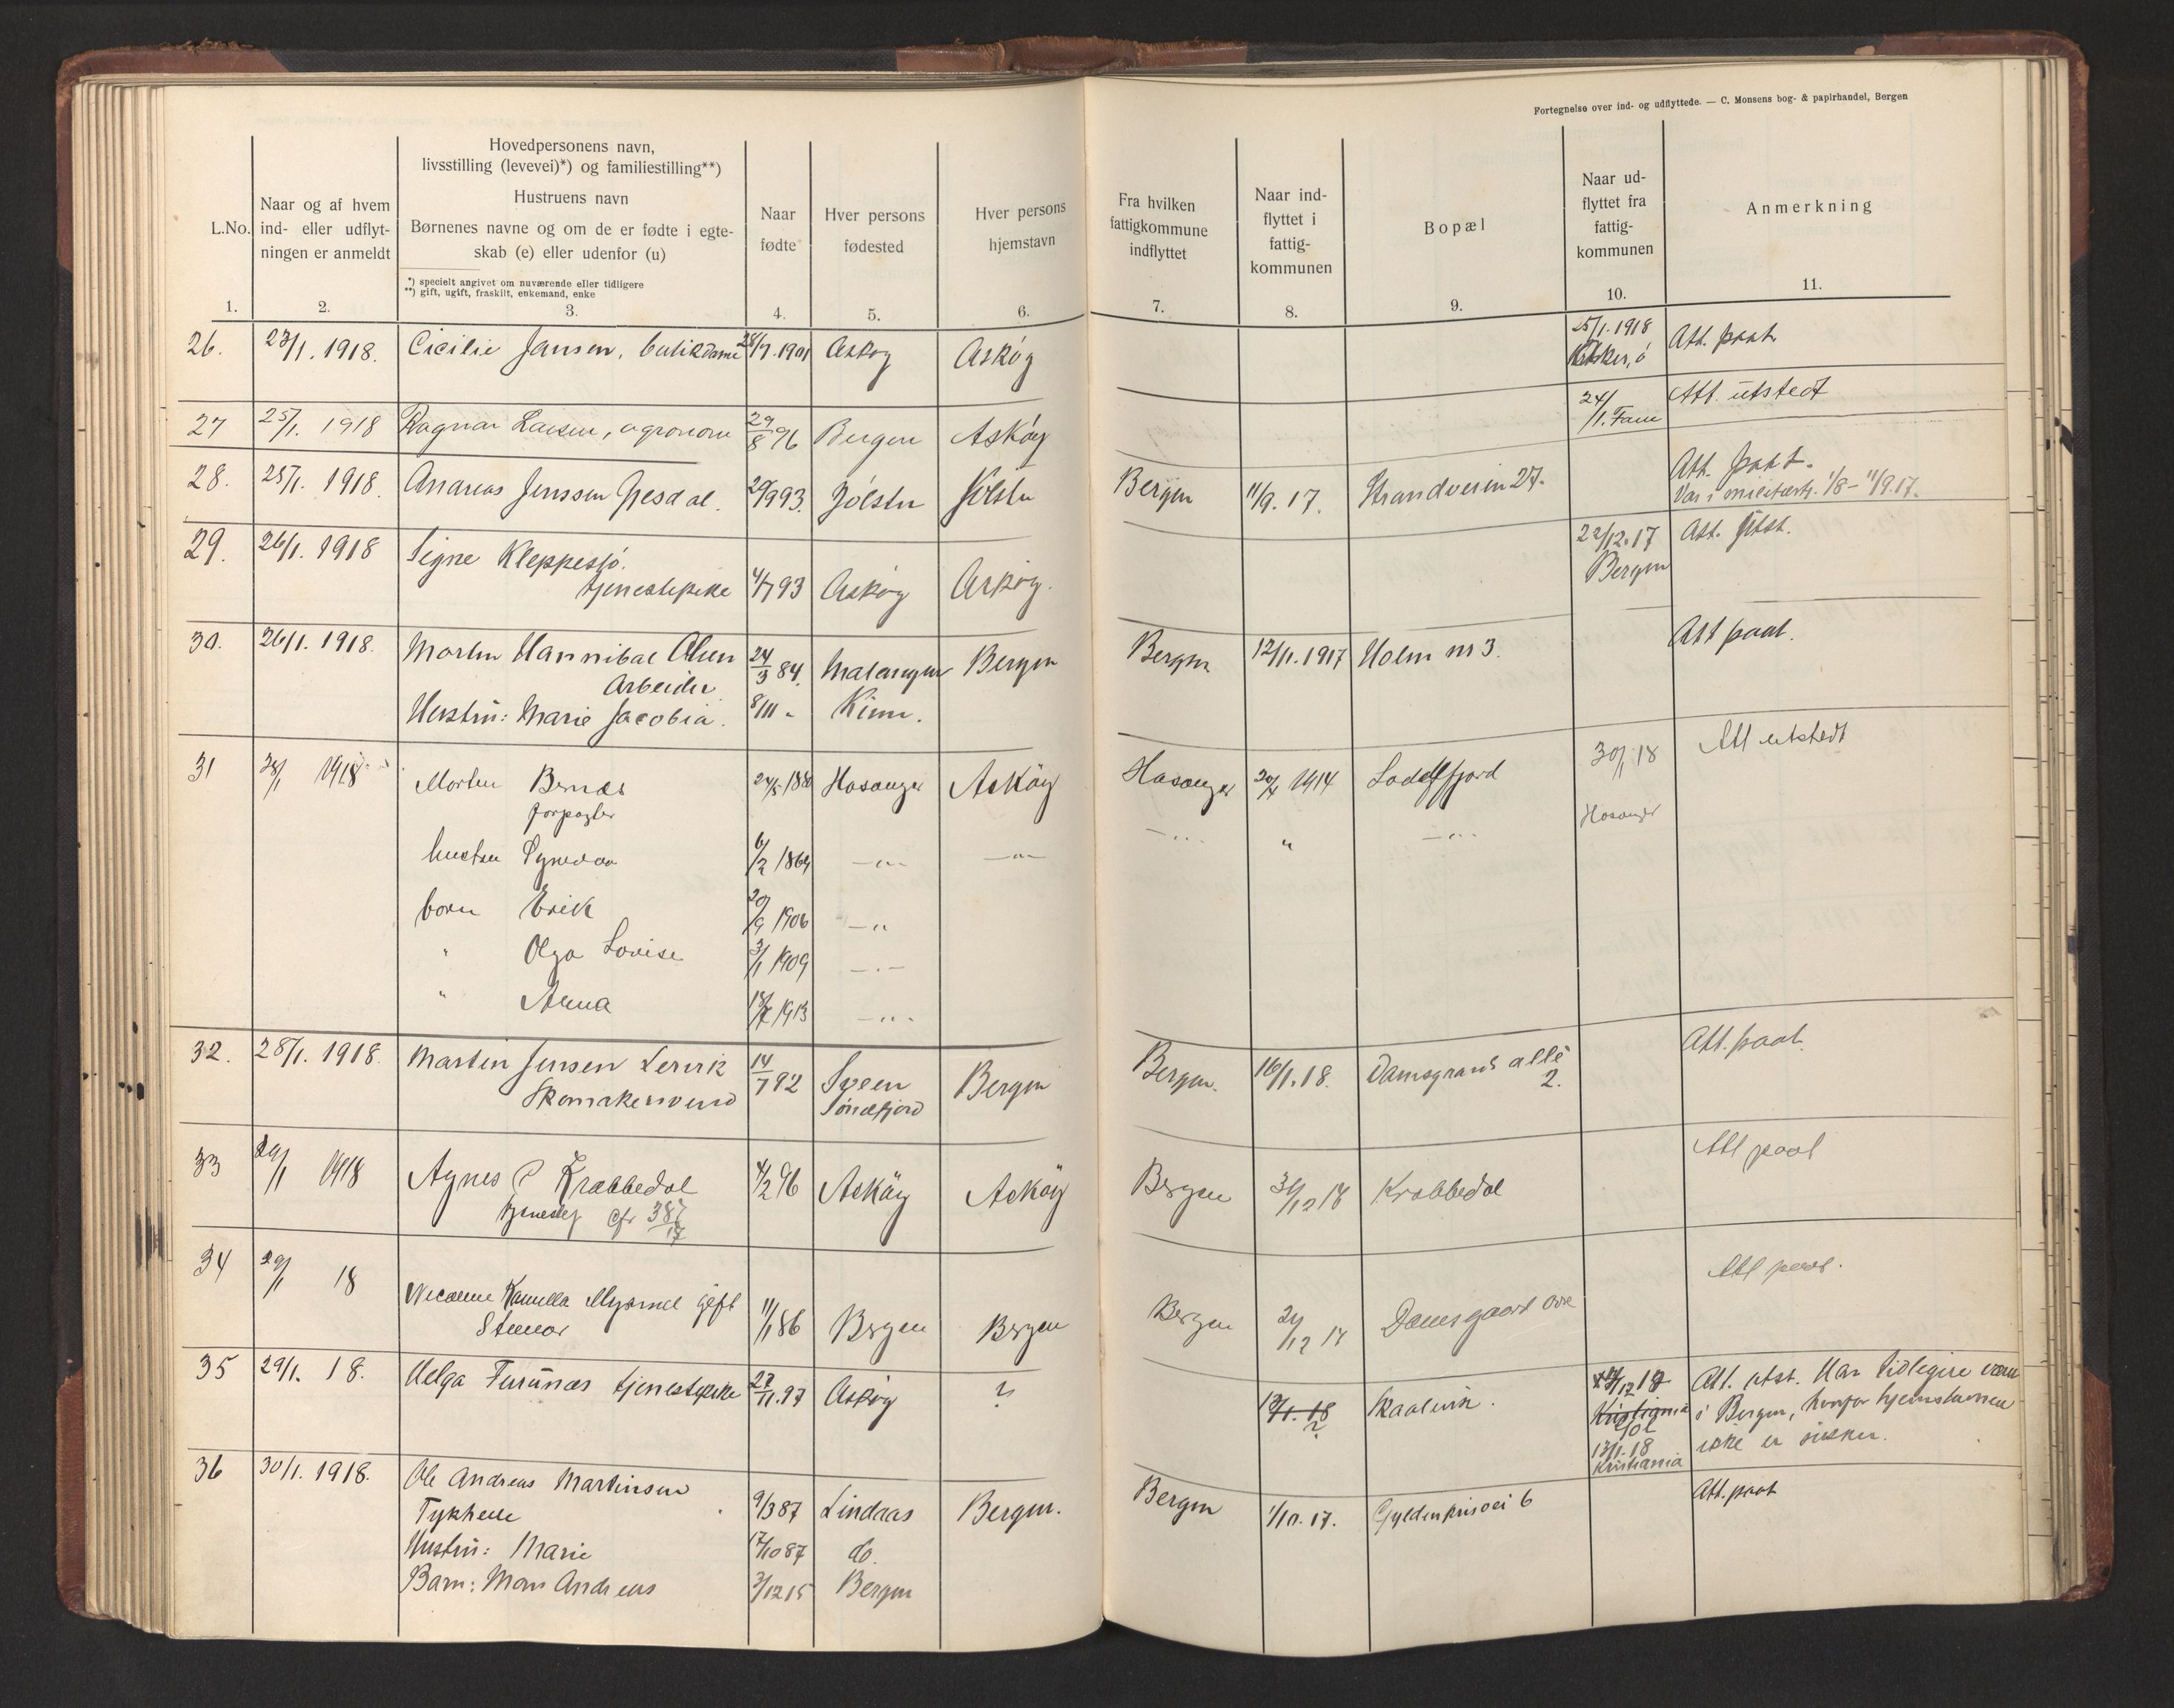 Fortegnelse over ind- og udflyttede. — C. Monsens bog- & papirhandel, Bergen
L.No.
1.
Naar og af hvem
ind- eller udflyt-
ningen er anmeldt
2.
Hovedpersonens navn,
livsstilling (levevei)*) og familiestilling**)
Hustruens navn
Børnenes navne og om de er fødte i egte-
skab (e) eller udenfor (u)
*) specielt angivet om nuværende eller tidligere
**) gift, ugift, fraskilt, enkemand, enke
3.
Naar
fødte
4.
Hver persons
fødested
5.
Hver persons
hjemstavn
6.
Fra hvilken
fattigkommune
indflyttet
7.
Naar ind-
flyttet i
fattig-
kommunen
8.
Bopæl
9.
Naar ud-
flyttet fra
fattig-
kommunen
10.
Anmerkning
11.
26. 23/1. 1918. Cicilie Jansen, butikdame 28/7.1901 Askøy Askøy 25/1.1918 Att. paat.
27 25/1. 1918 Ragnar Larsen, agronom 29/8 96 Bergen Askøy 24/1. Fane Att. utstedt
28. 25/1. 1918. Andreas Jenssen Gjesdal. 29/9 93. Jølster Jølster Bergen 11/9. 17. Strandveien 27. Att. paat.
Var i militærtj. 1/8 – 11/9.17.
29. 26/1. 1918 Signe Kleppesjø. 22/12.17 Att. Utst.
tjenestepike 4/7 93 Askøy Askøy. Bergen
30. 26/1. 1918. Morten Hannibal Olsen 24/3 84. Malangen Bergen Bergen 12/11. 1917 Holm nr 3. Att paat.
Arbeider
Hustru: Marie Jacobia. 8/11 " Kinn.
31 28/1 1918 Morten Bernes 24/5 1880 Hosanger Askøy Hosanger 20/4 1914 Loddefjord 30/1 18 Att utstedt
forpagter Hosanger
hustru 6/2 1864 — " — — " — — " — " — " —
born Erik 20/9 1906 — "
" Olga Lovise 3/1 1909 — " —
" Anna 1913 — " —
32. 28/1. 1918. Martin Jensen Lervik 14/7 92 Sveen Bergen Bergen. 16/1. 18. Damsgaards allé Att. paat.
Skomakersvend Søndfjord 2.
33 29/1 1918 Agnes P Krabbedal 4/2 96 Askøy Askøy Bergen 31/12 17 Krabbedal Att paat
tjenestep cfr 387/17
34 29/1 18 Kamilla gift Att paat.
11/1 86 Bergen Bergen Bergen 21/12 17 Damsgaard øvre
35 29/1. 18. Helga Furunæs tjenestepike 27/11.97 Askøy ? 12/1. 18 Skaalevik. 12 17 Att. utst. Har tidligere været
? Kristiania i Bergen, hvorfor hjemstavnen
13/1.18 ikke er sikker.
Kristiania
36 30/1. 1918. Ole Andreas Martinsen Att. paat
9/3 87 Lindaas Bergen. Bergen 1/10. 17. Gyldenprisvei 6
Hustru: Marie 17/10 87 do.
Barn: Mons Andreas 3/12 15 Bergen